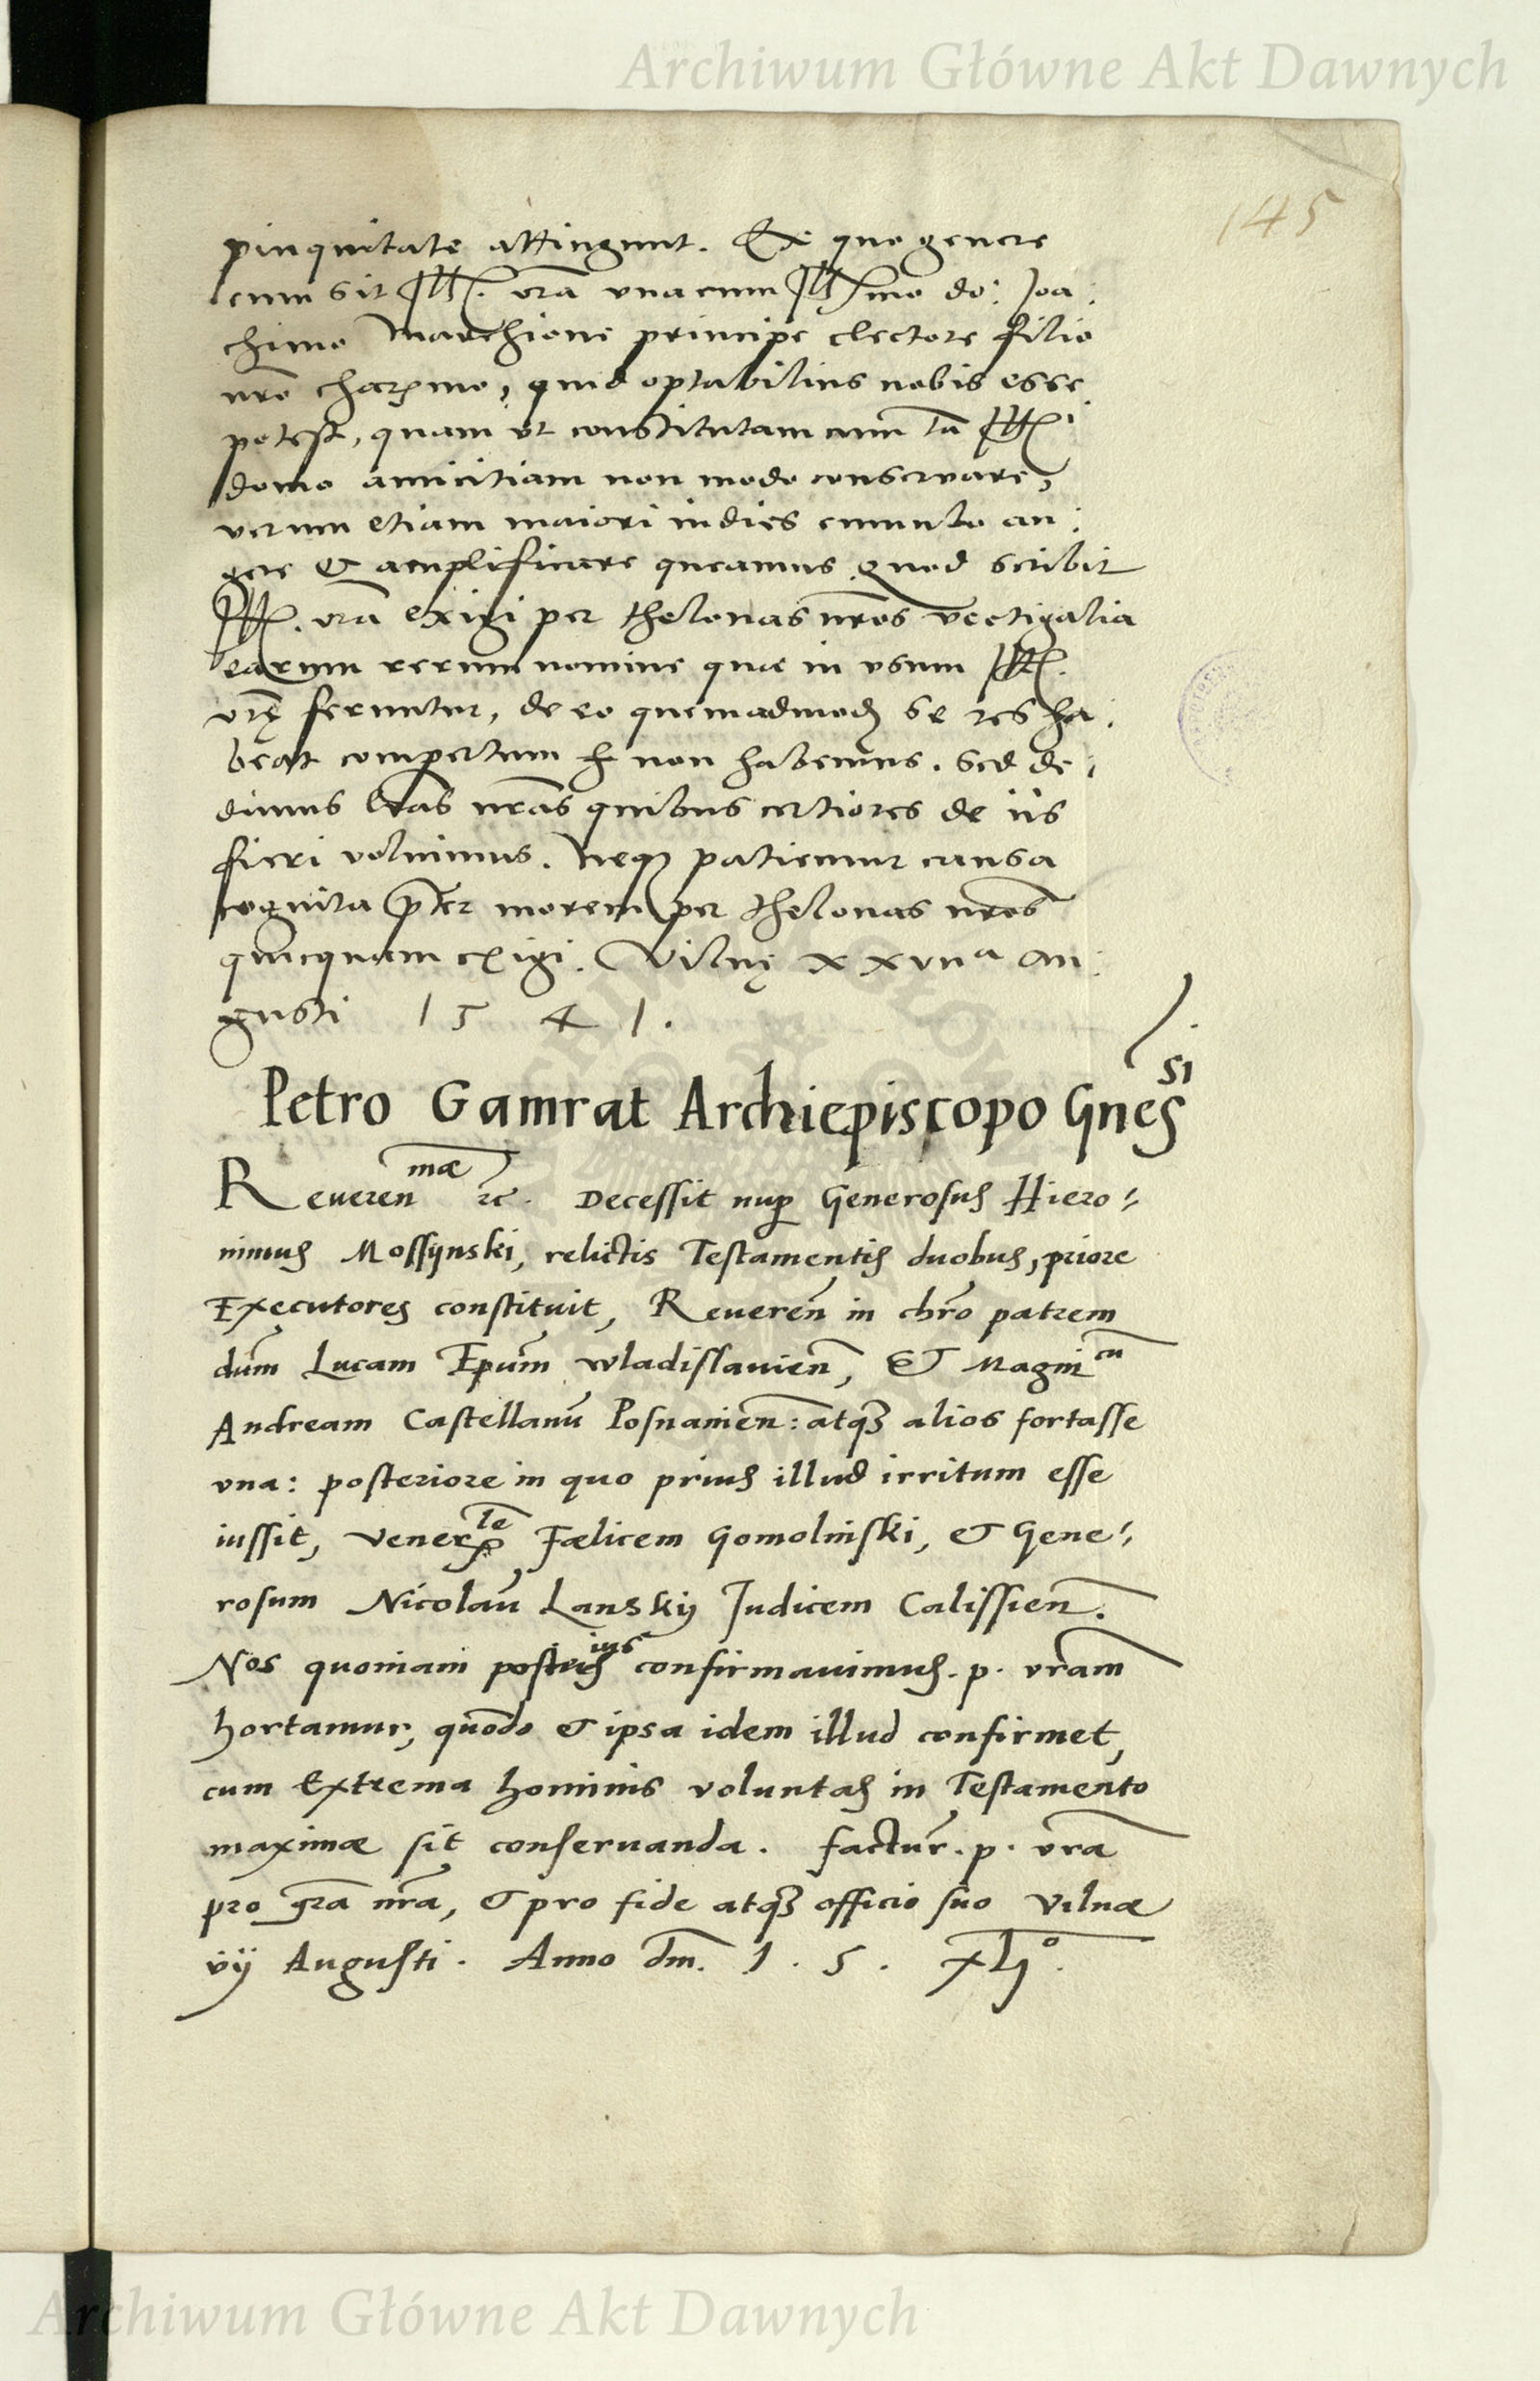 Archiwum Główne Akt Dawnych
145
pinquitate attingunt. Ex quo genere
cum sit Ill. vra una cum Ill.mo do: Joa:
chimo Marchione principe electore filio
nro charmo, quid optabilius nobis esse
potest, quam ut constitutam cum ta Ill.
domo amicitiam non modo conservare,
verum etiam maiori indies cumulo au:
gere & amplificare queamus. Quod scribit
Ill. vra exigi per thelonas nros vectigalia
earum rerum nomine quae in usum Ill.
vrę feruntur, de eo quemadmod se res ha:
beat compertum non habemus. Sed de:
dimus lras nras quibus certiores de iis
fieri volumus. Neqz patiemur causa
cognita pter morem per thelonas nros
quicquam exigi. Vilnę xxvna Au:
gusti 1541.
Petro Gamrat Archiepiscopo Gnesn̄ si
Reveren mae rc. Decessit nup Generosus Hiero:
nimus Mossynski, relictis Testamentis duobus, priore
Executores constituit, Reveren in chro patrem
dum Lucam Epum wladislavien, & Magnicu
Andream Castellanu Posnanien: atqz alios fortasse
una: posteriore in quo prius illud irritum esse
iussit, venerle Fœlicem Gomolinski, & Gene:
rosum Nicolau Lanskij Judicem Calissien.
Nos quoniam posterius confirmavimus. p. vram
hortamur, quodo & ipsa idem illud confirmet,
cum Extrema hominis voluntas in Testamento
maximæ sit conservanda. factur. p. vra
pro gra nra, & pro fide atqz officio suo Vilnæ
vij Augusti. Anno dm. 1.5. xljo.
Archiwum Główne Akt Dawnych